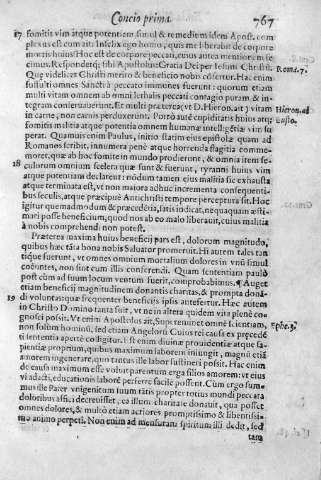 Concio prima. 767
17 fomitis vim atque potentiam simul & remedium idem Apost. com
plexus est cum ait. Infelix ego homo, quis me liberabit de corpore
mortis huius Hoc est de corpore peccati, cuius autea mentionem fe
cimus. Respondetq; sibi Apostolus Gratia Dei per Iesum Christũ. Roma.7.
Que videlicet Christi merito & beneficio nobis confertur. Hac enim
suffulti omnes Sancti à peccato immunes fuerunt: quorum etiam
multi vitam omnem ab omni lethalis peccati contagio puram & in-
tegram conseruauerunt. Et multi præterea (vt D. Hieron. ait) vitam Hieron. ad
in carne, non carnis perduxerunt. Porrò autẽ cupiditatis huius atq;
fomitis malitia atque potentia omnem humanæ intelligẽtiæ vim su
perat. Quamuis enim Paulus, initio statim eius epistolæ quam ad
Romanes scribit, innumera penè atque horrenda flagitia comme-
moret, quæ ab hoc fomite in mundo prodierunt, & omnia item se-
18 culorum omnium scelera quæ sunt & fuerunt, tyranni huius vim
atque potentiam declarent: nõdum tamen eius malitia sic exhausta
atque terminata est, vt non maiora adhuc incrementa consequenti-
bus seculis, atque præcipuè Antichristi tempore perceptura sit. Hoc
igitur quemadmodum & præcedẽtia, satis indicat, nequaquam æsti-
mari posse beneficium, quod nos ab eo malo liberauit, cuius malitia
à nobis comprehendi non potest.
Præterea maxima huius beneficij pars est, dolorum magnitudo,
quibus hæc tãta bona nobis Saluator promeruit. Hi autem tales tan
tique fuerunt, vt omnes omnium mortalium dolores in vnũ simul
coëuntes, non sint cum illis conferendi. Quam sententiam paulò
post cùm ad suum locum ventum fuerit, comprobabimus. ¶ Auget
etiam beneficij magnitudinem donantis charitas, & prompta donã-
19 di voluntas: quæ frequenter beneficijs ipsis antefertur. Hæc autem
in Christo Domino tanta fuit, vt ne in altera quidem vita plenè co-
gnosci possit. Vt enim Apostolus ait, Supereminet omnẽ scientiam, Ephe.3.
non solùm hominũ, sed etiam Angelorũ Cuius rei causa ex præcedẽ
ti sententia apertè colligitur. Est enim diuinæ prouidentiæ atque sa-
pientiæ proprium, quibus maximum laborem iniungit, magnũ etiã
amorem ingenerare, quo tantus ille labor sustineri possit. Hac enim
de causa maximum esse voluit parentum erga filios amorem: vt eius
vi adacti, educationis laborẽ perferre facilè possent. Cum ergo sum-
mus ille Pater vnigenitum suum tatis propter totius mundi peccata
doloribus affici decreuisset, ea illum charitate donauit, qua posset
omnes dolores, & multò etiam acriores promptissimo & libentissi-
mo animo perpeti. Non enim ad mensuram spiritum illi dedit, sed
tanta